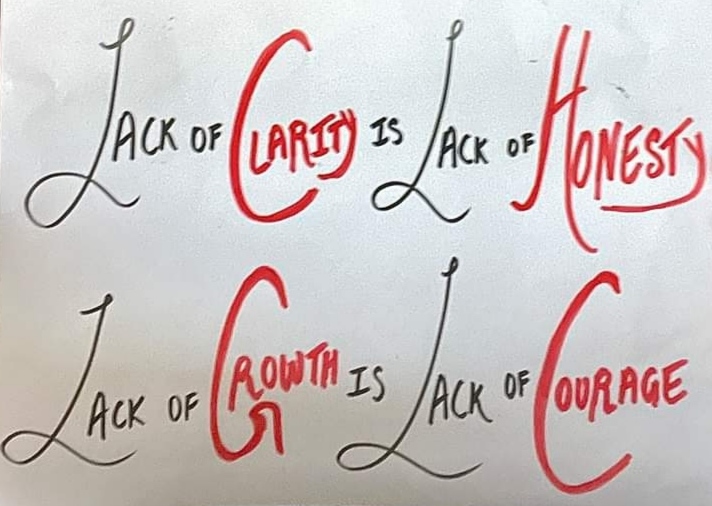 LACK OF CLARITY IS LACK OF HONESTY
LACK OF GROWTH IS LACK OF COURAGE